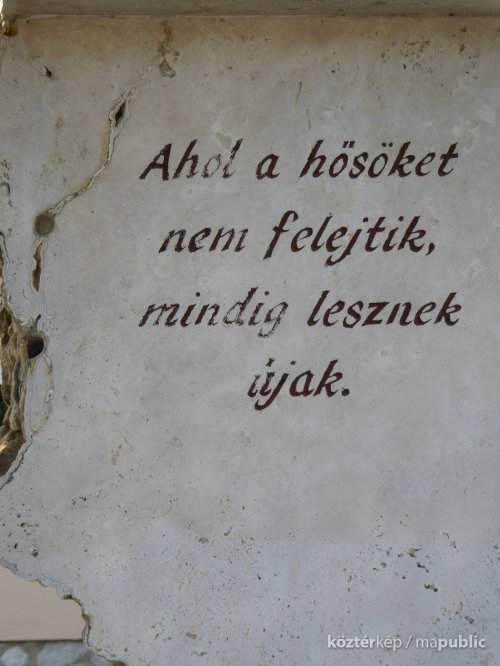 Ahol a hősöket
nem felejtik,
mindig lesznek
újak.
köztérkép / mapublic